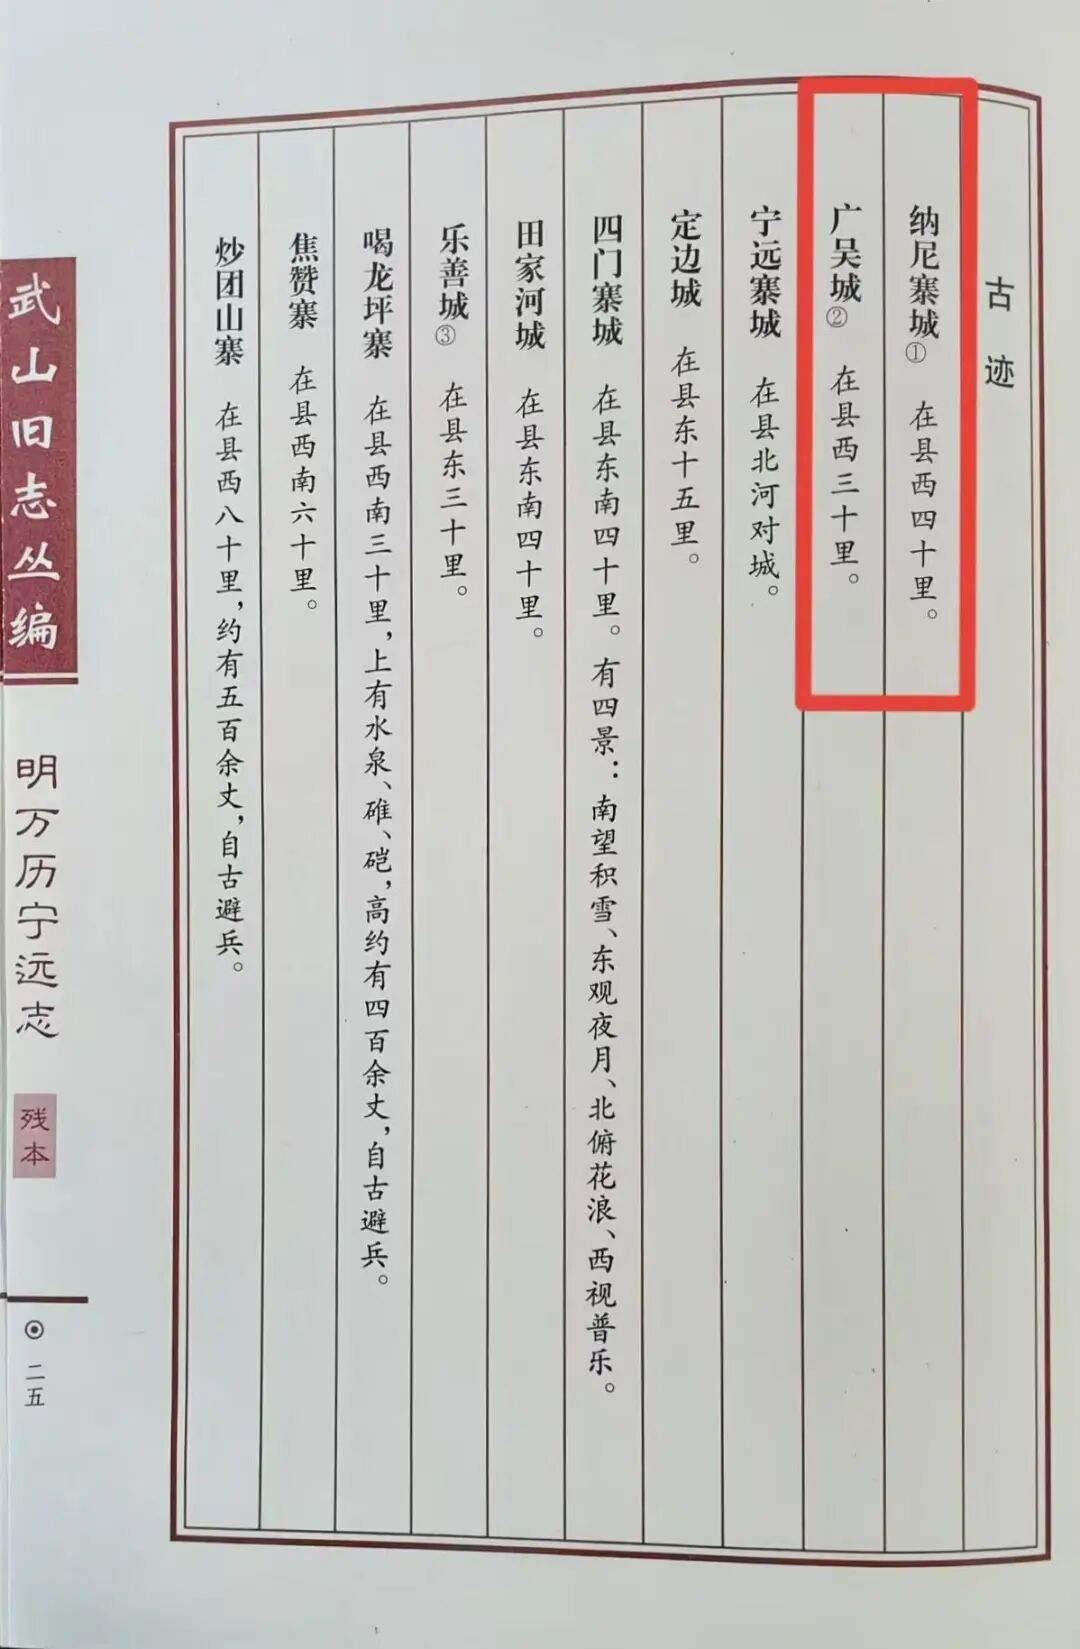 古迹
纳尼寨城① 在县西四十里。
广吴城② 在县西三十里。
宁远寨城 在县北河对城。
定边城 在县东十五里。
四门寨城 在县东南四十里。有四景：南望积雪、东观夜月、北俯花浪、西视普乐。
田家河城 在县东南四十里。
乐善城③ 在县东三十里。
喝龙坪寨 在县西南三十里，上有水泉、碓、硙，高约有四百余丈，自古避兵。
焦赞寨 在县西南六十里。
炒团山寨 在县西八十里，约有五百余丈，自古避兵。
武山旧志丛编
明万历宁远志
残本
二五